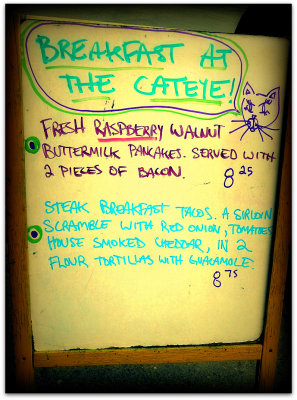 BREAKFAST AT
THE CATEYE!
FRESH RASPBERRY WALNUT
BUTTERMILK PANCAKES. SERVED WITH
2 PIECES OF BACON.
8 25
STEAK BREAKFAST TACOS. A SIRLOIN
SCRAMBLE WITH RED ONION, TOMATOES
HOUSE SMOKED CHEDDAR, IN 2
FLOUR TORTILLAS WITH GUACAMOLE.
8 75